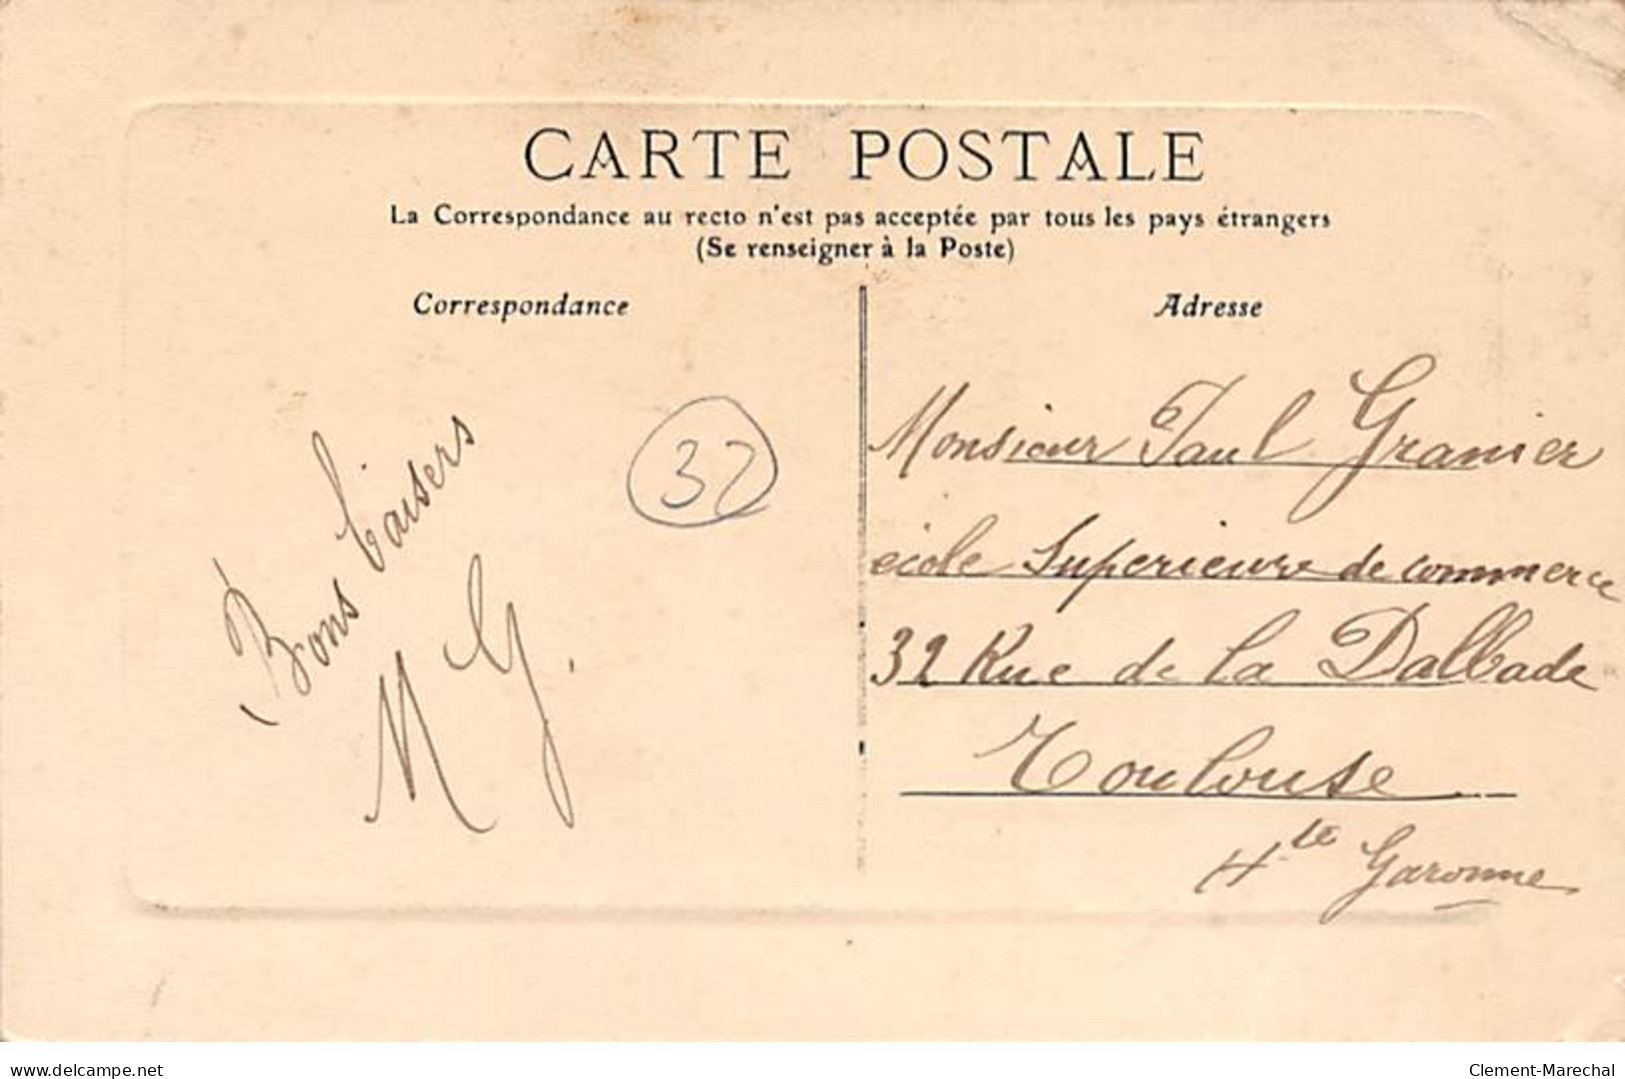 CARTE POSTALE
La Correspondance au recto n'est pas acceptée par tous les pays étrangers
(Se renseigner à la Poste)
Correspondance
Bons baisers
M G.
32
Adresse
Monsieur Paul Granier
école Superieure de commerce
32 Rue de la Dalbade
Toulouse
Hte Garonne
www.delcampe.net
Clement-Marechal